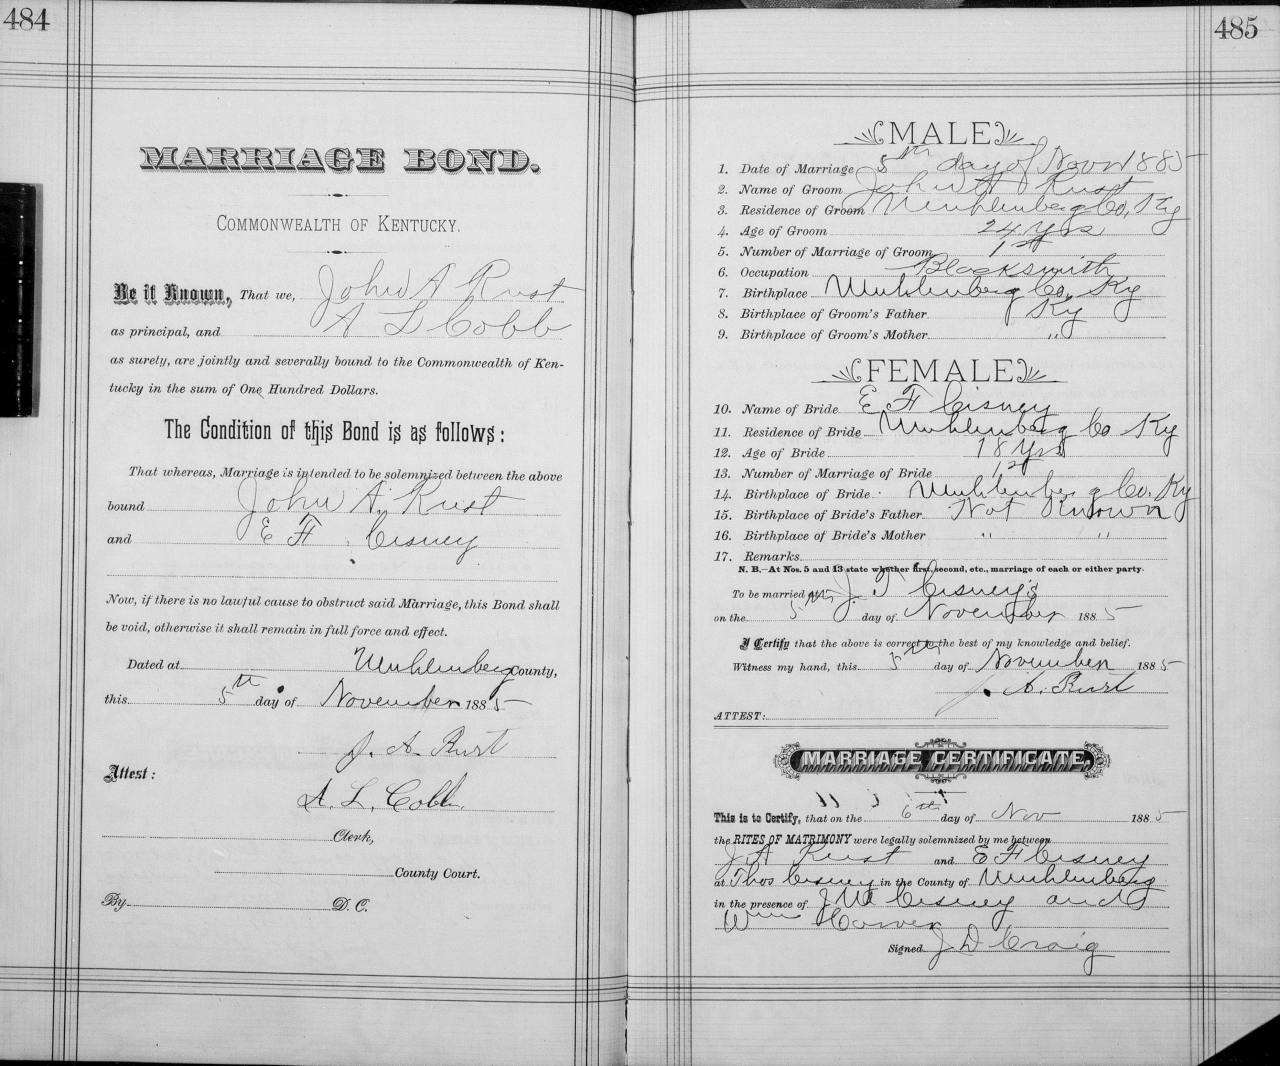 484
MARRIAGE BOND.
COMMONWEALTH OF KENTUCKY.
Be it Known, That we, John A Rust
as principal, and A L Cobb
as surety, are jointly and severally bound to the Commonwealth of Ken-
tucky in the sum of One Hundred Dollars.
The Condition of this Bond is as follows:
That whereas, Marriage is intended to be solemnized between the above
bound John A. Rust
and E F Cisney
Now, if there is no lawful cause to obstruct said Marriage, this Bond shall
be void, otherwise it shall remain in full force and effect.
Dated at Muhlenberg County,
this 5th day of November 1885
J. A. Rust
Attest:
A. L. Cobb
Clerk,
County Court.
By D. C.
485
MALE
1. Date of Marriage 5th day of Novr 1885
2. Name of Groom John A Rust
3. Residence of Groom Muhlenberg Co, Ky
4. Age of Groom 24 Yrs
5. Number of Marriage of Groom 1st
6. Occupation Blacksmith
7. Birthplace Muhlenberg Co, Ky
8. Birthplace of Groom's Father Ky
9. Birthplace of Groom's Mother "
FEMALE
10. Name of Bride E F Cisney
11. Residence of Bride Muhlenberg Co Ky
12. Age of Bride 18 Yrs
13. Number of Marriage of Bride 1st
14. Birthplace of Bride Muhlenberg Co, Ky
15. Birthplace of Bride's Father Not Known
16. Birthplace of Bride's Mother " "
17. Remarks
N. B.—At Nos. 5 and 13 state whether first, second, etc., marriage of each or either party.
To be married at J. T Cisney's
on the 5th day of November 1885
I Certify that the above is correct to the best of my knowledge and belief.
Witness my hand, this 5th day of November 1885
J. A. Rust
ATTEST:
MARRIAGE CERTIFICATE.
This is to Certify, that on the 6th day of Nov 1885
the RITES OF MATRIMONY were legally solemnized by me between
J A Rust and E F Cisney
at Thos Cisney in the County of Muhlenberg
in the presence of J M Cisney and
Wm
Signed J D Craig